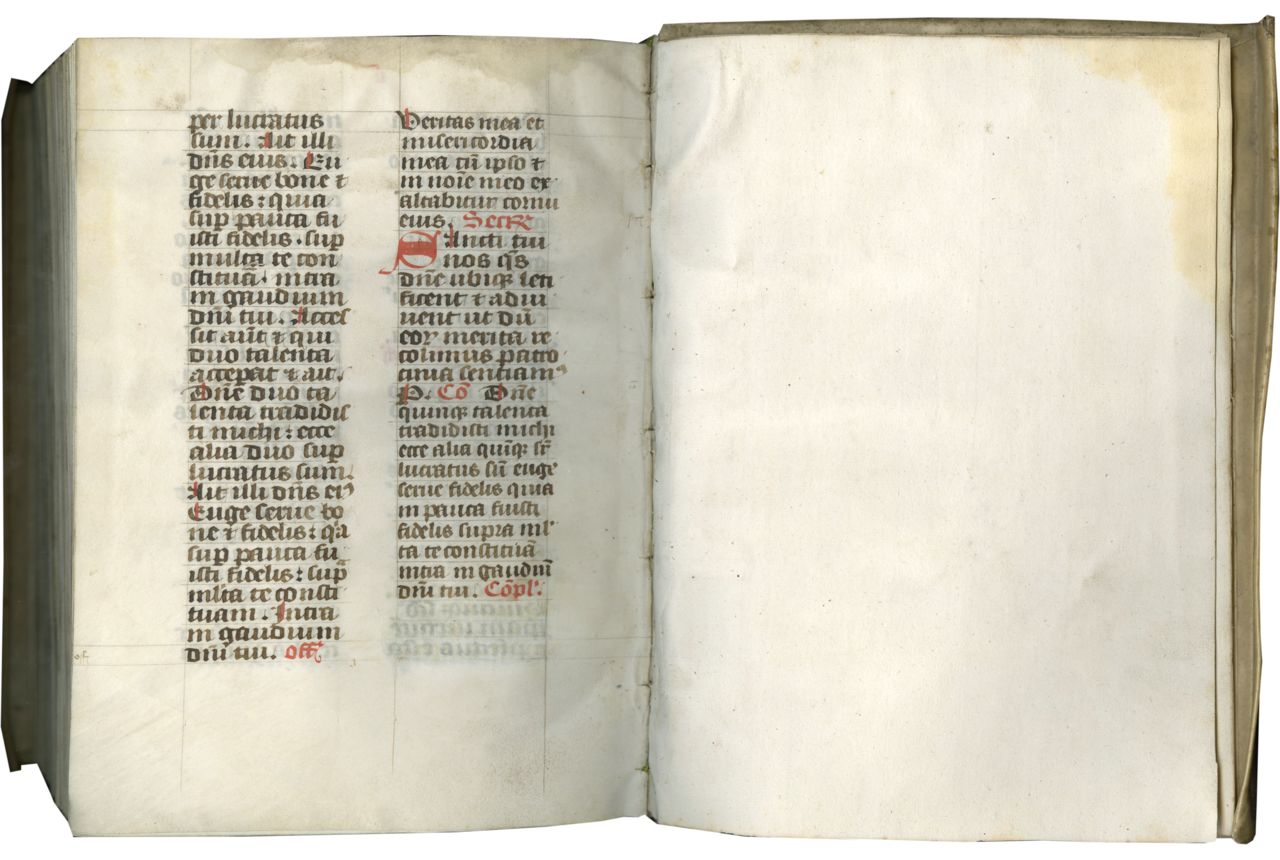 per lucratus
sum. Ait illi
dñs eius. Eu
ge serue bone ⁊
fidelis : quia
sup pauca fu
isti fidelis . sup
multa te con
stituã . intra
in gaudium
dñi tui. Acces
sit aũt ⁊ qui
duo talenta
acceperat ⁊ ait.
Dñe duo ta
lenta tradidis
ti michi : ecce
alia duo sup
lucratus sum.
Ait illi dñs ei⁹
Euge serue bo
ne ⁊ fidelis : qa
sup pauca fu
isti fidelis : sup
mlta te consti
tuam. Intra
in gaudium
dñi tui. off
Veritas mea et
misericordia
mea cũ ipso ⁊
in noĩe meo ex
altabitur cornu
eius. Secre
Sancti tui
nos q̃s
dñe ubiq; leti
ficent ⁊ adiu
uent ut dũ
eoꝝ merita re
colimus patro
cinia sentiam⁹
P. Cõ Dñe
quinq; talenta
tradidisti michi
ecce alia quĩq; sr̃
lucratus sũ euge
serue fidelis quia
in pauca fuisti
fidelis supra ml
ta te constituã
intra in gaudiũ
dñi tui. Cõpl.